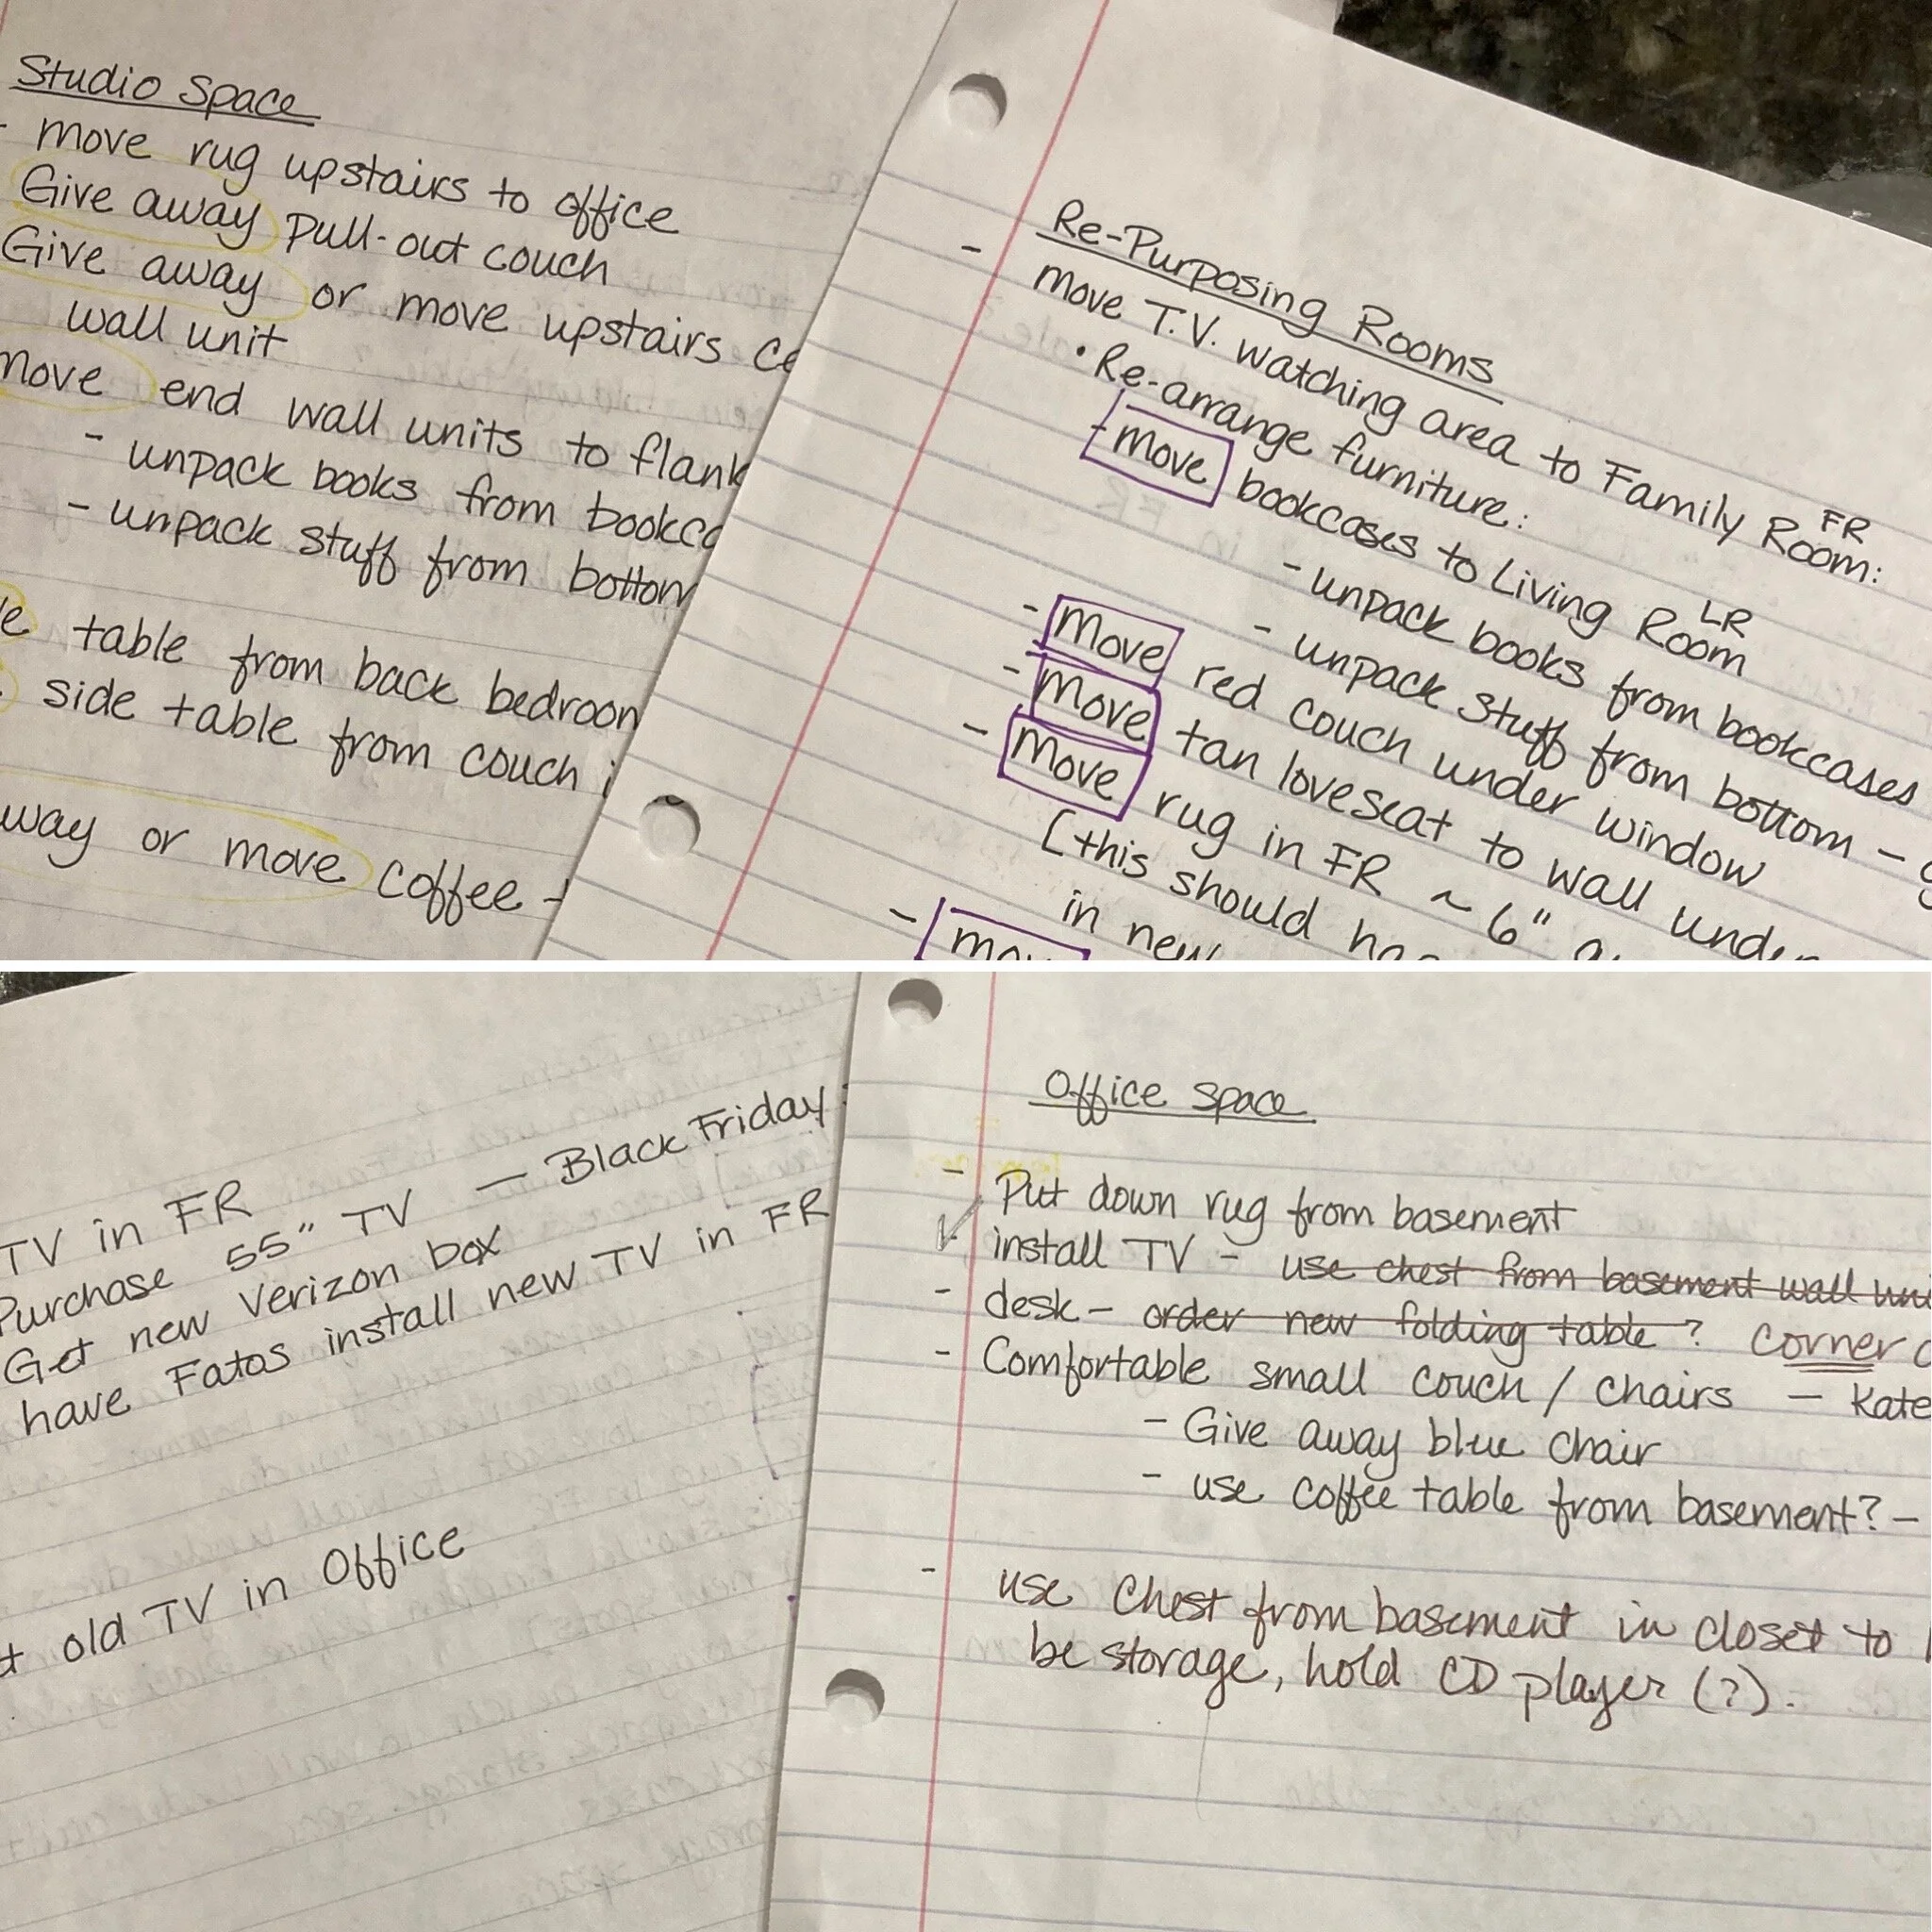 Studio Space
- move rug upstairs to office
Give away Pull-out couch
Give away or move upstairs
wall unit
move end wall units to flank
- unpack books from
- unpack stuff from bottom
table from back bedroom
side table from couch
or move coffee
Re-Purposing Rooms
- move T.V. watching area to Family Room: FR
• Re-arrange furniture:
- move bookcases to Living Room LR
- unpack books from bookcases
- unpack stuff from bottom -
- move red couch under window
- move tan loveseat to wall under
- move rug in FR ~ 6"
[this should
in new
-
TV in FR
Purchase 55" TV — Black Friday
Get new Verizon box
have Fatos install new TV in FR
old TV in Office
Office Space
- Put down rug from basement
- install TV - use chest from basement wall
- desk - order new folding table? corner
- Comfortable small couch / chairs — Kate
- Give away blue chair
- use coffee table from basement? -
- use chest from basement in closet to
be storage, hold CD player (?).